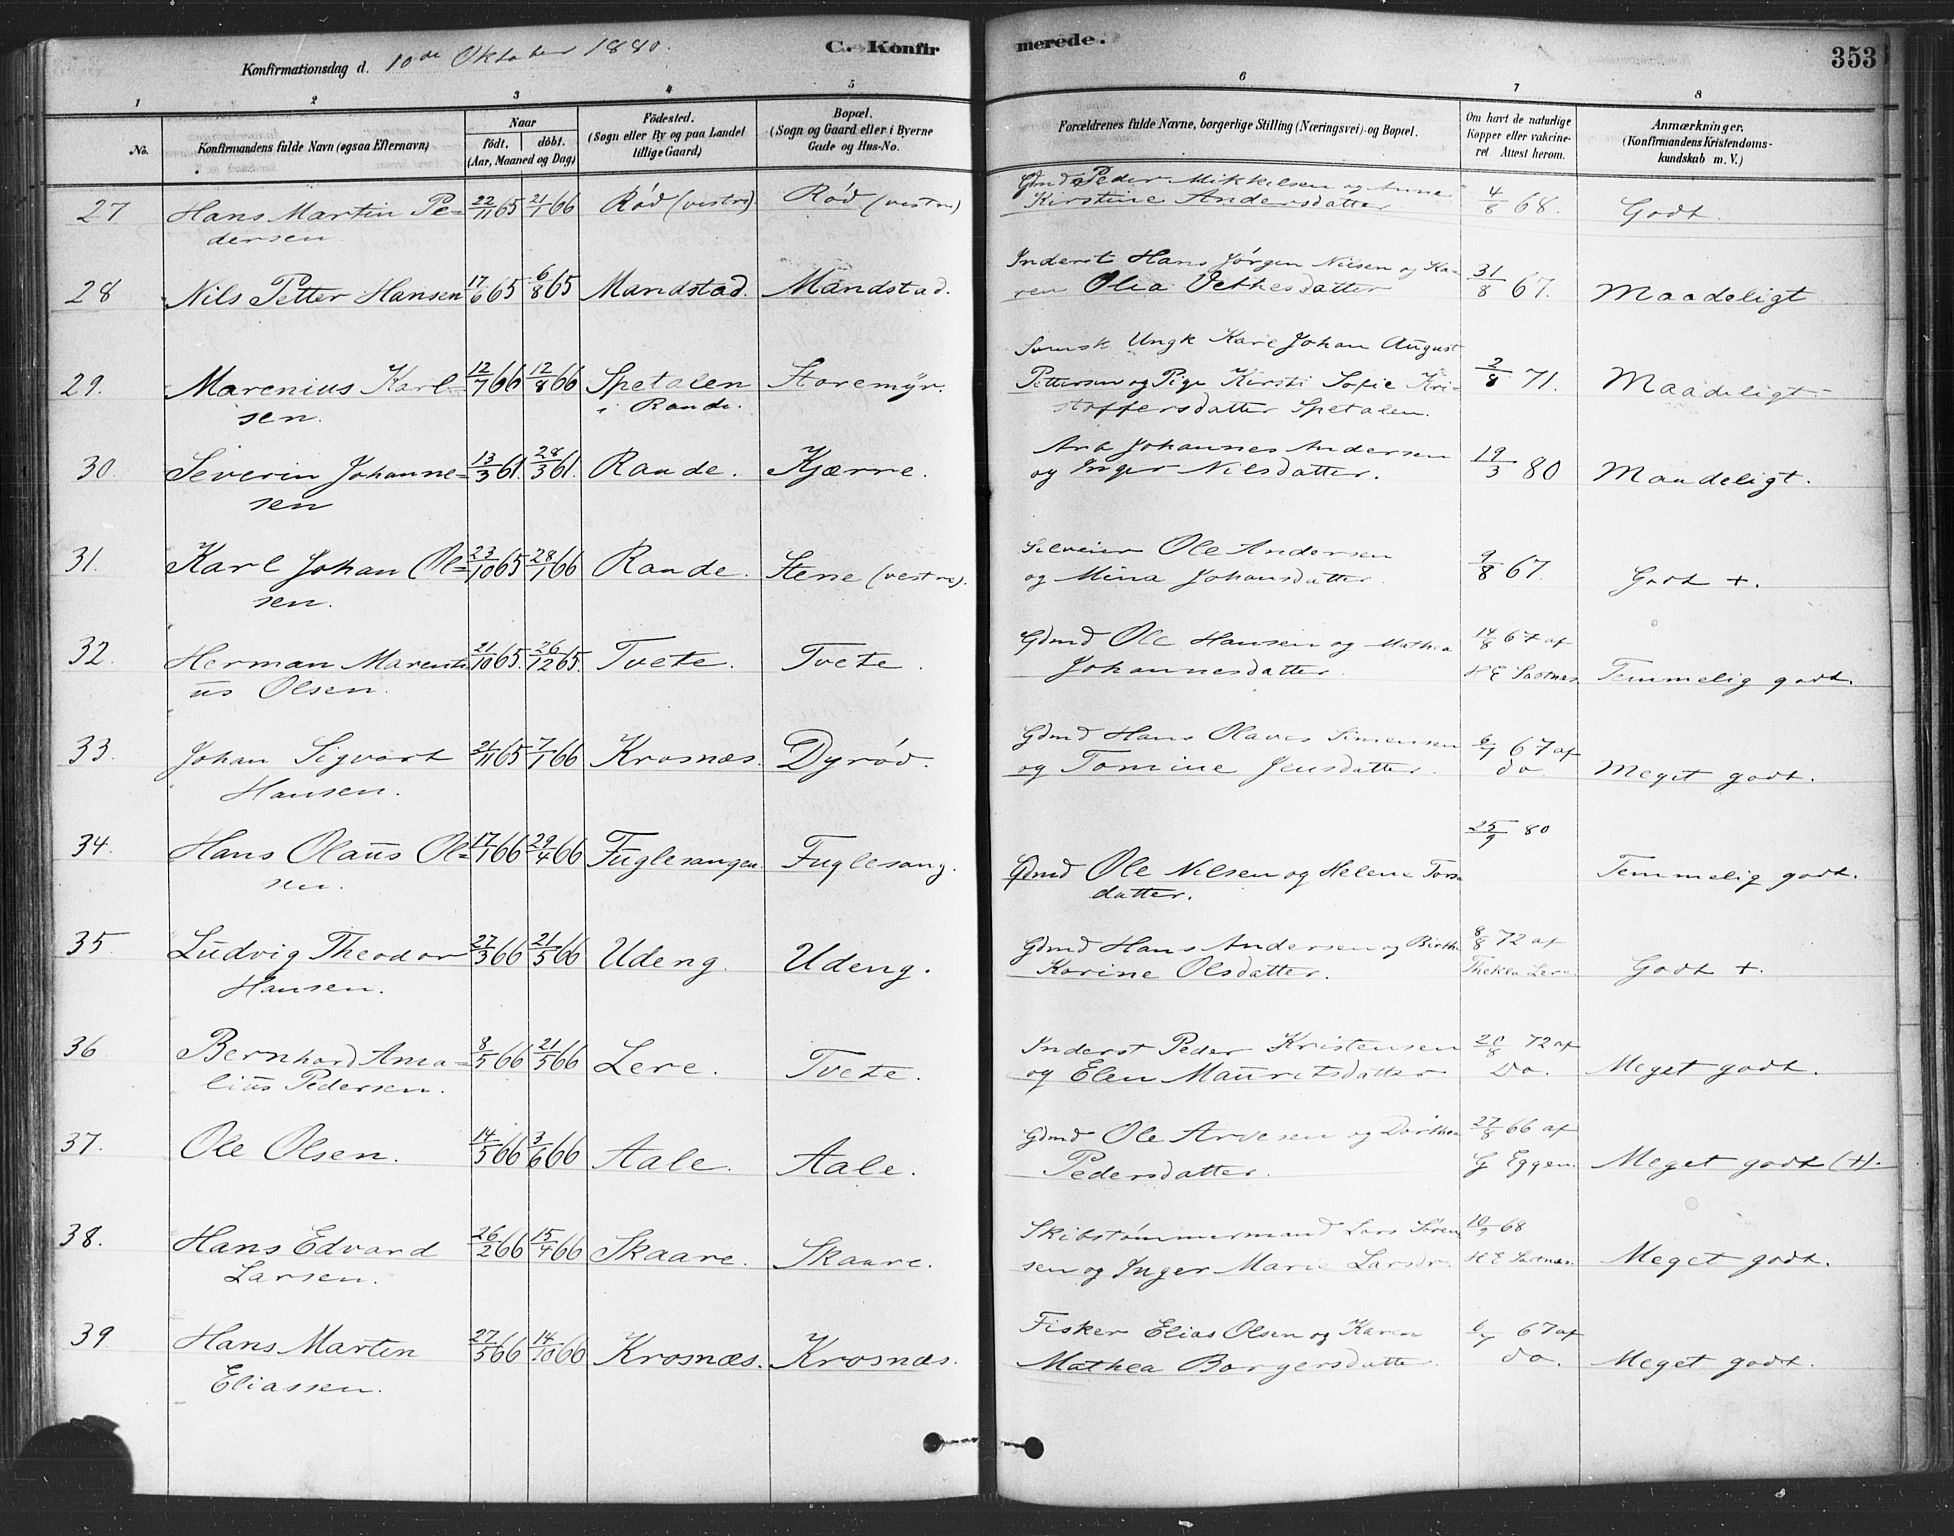 Konfirmationsdag d. 10de Oktober 1880. C. Konfirmerede. 353
1 2 3 4 5 6 7 8
No. Konfirmandens fulde Navn (ogsaa Efternavn) Naar født. døbt. (Aar, Maaned og Dag) Fødested. (Sogn eller By og paa Landet lillige Gaard) Bopæl. (Sogn og Gaard eller i Byerne Gade og Hus-No. Forældrenes fulde Navne, borgerlige Stilling (Næringsvei) og Bopæl. Om havt de naturlige Kopper eller vakcineret. Attest herom. Anmærkninger. (Konfirmandens Kristendomskundskab m. V.)
27 Hans Martin Pe- 22/11 65 21/1 66 Rød (vestre) Rød (vestre) Gmd Peder Mikkelsen og Anne 4/8 68. Godt.
dersen Kirstine Andersdatter
28 Nils Petter Hansen 17/6 65 6/8 65 Mandstad. Mandstad. Inderst Hans Jørgen Nilsen og Ka- 31/8 67. Maadeligt
ren Olia Vethesdatter
29. Marenius Karl- 12/7 66 12/8 66 Spetalen Støremyr. Svensk Ungk Karl Johan August 2/8 71. Maadeligt.
sen. i Raade. Pettersen og Pige Kirsti Sofie Kri-
stoffersdatter Spetalen.
30. Severin Johanne- 13/3 61. 28/3 61. Raade. Kjærre. Arb Johannes Andersen 19/3 80 Maadeligt.
sen og Inger Nilsdatter.
31. Karl Johan Ol- 23/10 65 28/1 66 Raade. Stene (vestre). Selveier Ole Andersen 9/8 67. Godt +.
sen. og Mina Johansdatter
32. Herman Marenti- 21/10 65. 26/12 65. Tvete. Tvete. Gdmd Ole Hansen og Mathea 14/8 67 af
us Olsen. Johannesdatter H E Sastnæs Temmelig godt.
33. Johan Sigvart 21/11 65 7/1 66 Krosnæs. Dyrød. Gdmd Hans Olaves Simensen 6/7 67 af
Hansen. og Tomine Jensdatter. do Meget godt.
34. Hans Olaus Ol- 17/1 66 29/4 66 Fuglesangen. Fuglesang. 25/9 80 Temmelig godt.
sen. Gdmd Ole Nilsen og Helene Tors-
datter.
35 Ludvig Theodor 27/3 66 21/5 66 Udeng. Udeng. Gdmd Hans Andersen og Birthe 8/8 72 af
Hansen. Karine Olsdatter. Thekla Lere Godt +.
36 Bernhard Ama- 8/5 66 21/5 66 Lere. Tvete. Inderst Peder Kristensen 20/8 72 af
lius Pedersen. og Elen Mauritsdatter Do. Meget godt.
37. Ole Olsen. 14/5 66 3/6 66 Aale. Aale. Gdmd Ole Arvesen og Dorthea 27/8 66 af
Pedersdatter. G Eggen. Meget godt (+).
38. Hans Edvard 26/2 66 15/4 66 Skaare. Skaare. Skibstømmermand Lars Søren 10/9 68
Larsen. sen og Inger Marie Larsdr. H E Sastnæs. Meget godt.
39 Hans Martin 27/5 66 14/10 66 Krosnæs. Krosnæs. Fisker Elias Olsen og Karen 6/7 67 af
Eliassen. Mathea Borgersdatter. do. Meget godt.